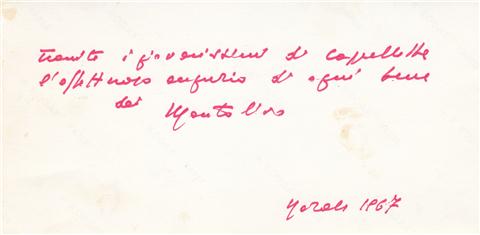 tramite i giovanissimi di Capellette
l'affettuoso augurio di ogni bene
dai Montalbos
Natale 1967